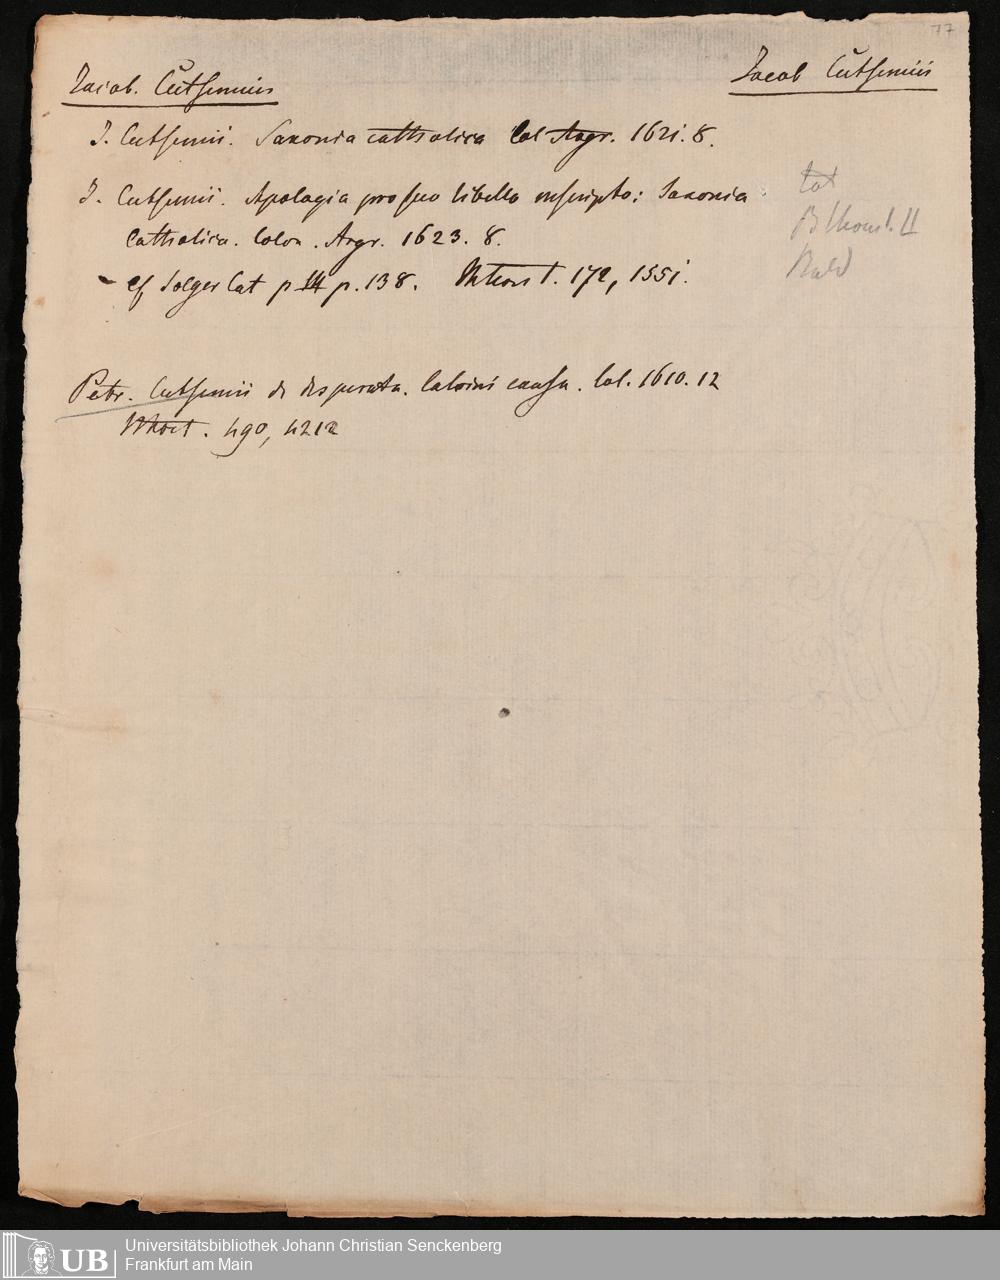 77
Jacob. Cutsemius
Jacob Cutsemius
J. Cutsemii. Saxonia catholica Col Agr. 1621. 8.
J. Cutsemii. Apologia pro suo libello inscripto: Saxonia
Catholica. Colon. Agr. 1623. 8.
- cf Solger Cat p III p. 138. 172, 1551.
tot
II
Petr. Cutsemii de desperata. Calvini causa. Col. 1610. 12
490, 4212
UB
Universitätsbibliothek Johann Christian Senckenberg
Frankfurt am Main